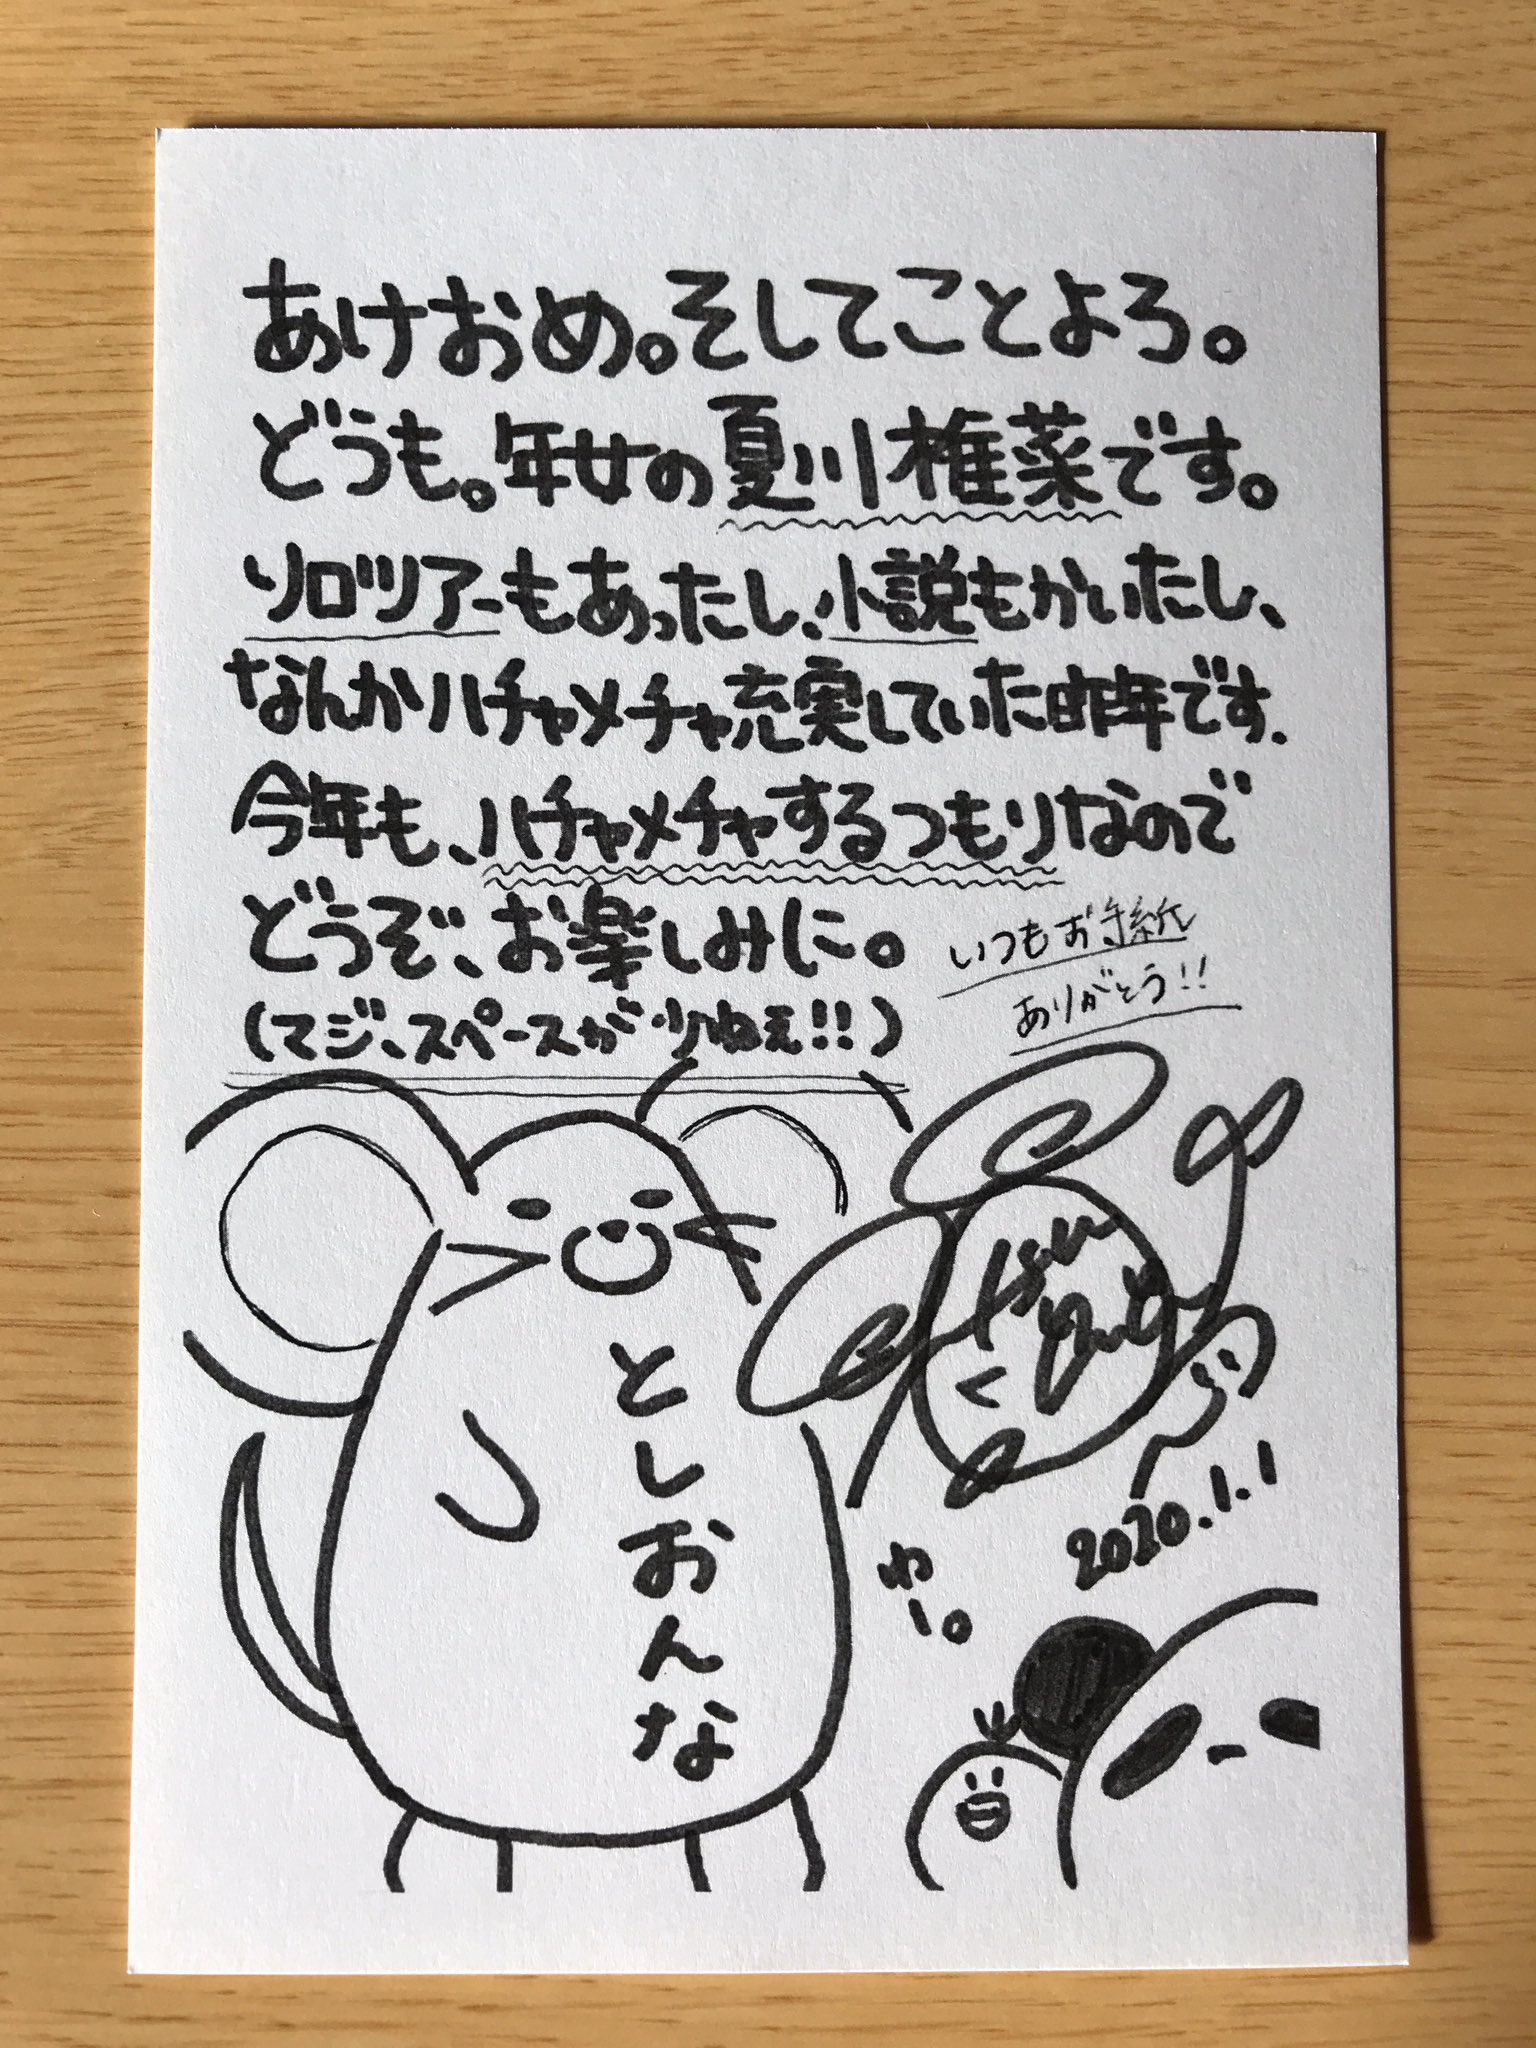 あけおめ。そしてことよろ。
どうも。年女の夏川椎菜です。
ソロツアーもあったし、小説もかいたし、
なんかハチャメチャ充実していた昨年です.
今年も、ハチャメチャするつもりなので
どうぞ、お楽しみに。
(マジ、スペースが少ねぇ!!)
いつもお手紙
ありがとう!!
としおんな
2020.1.1
わー。